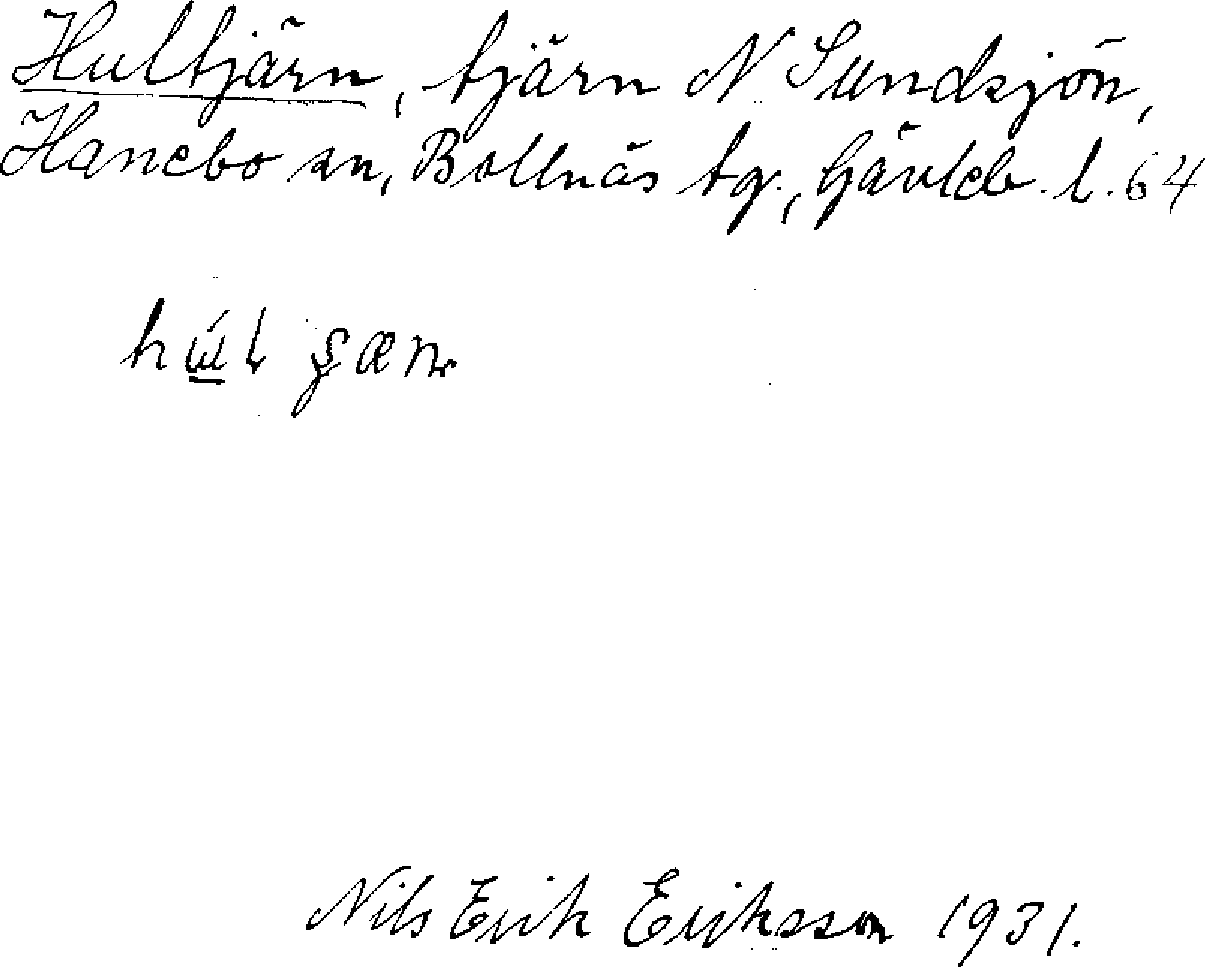 Hultjärn, tjärn N Sundsjön,
Hanebo sn, Bollnäs tg., Gävleb. l. 64
Nils Erik Eriksson 1931.